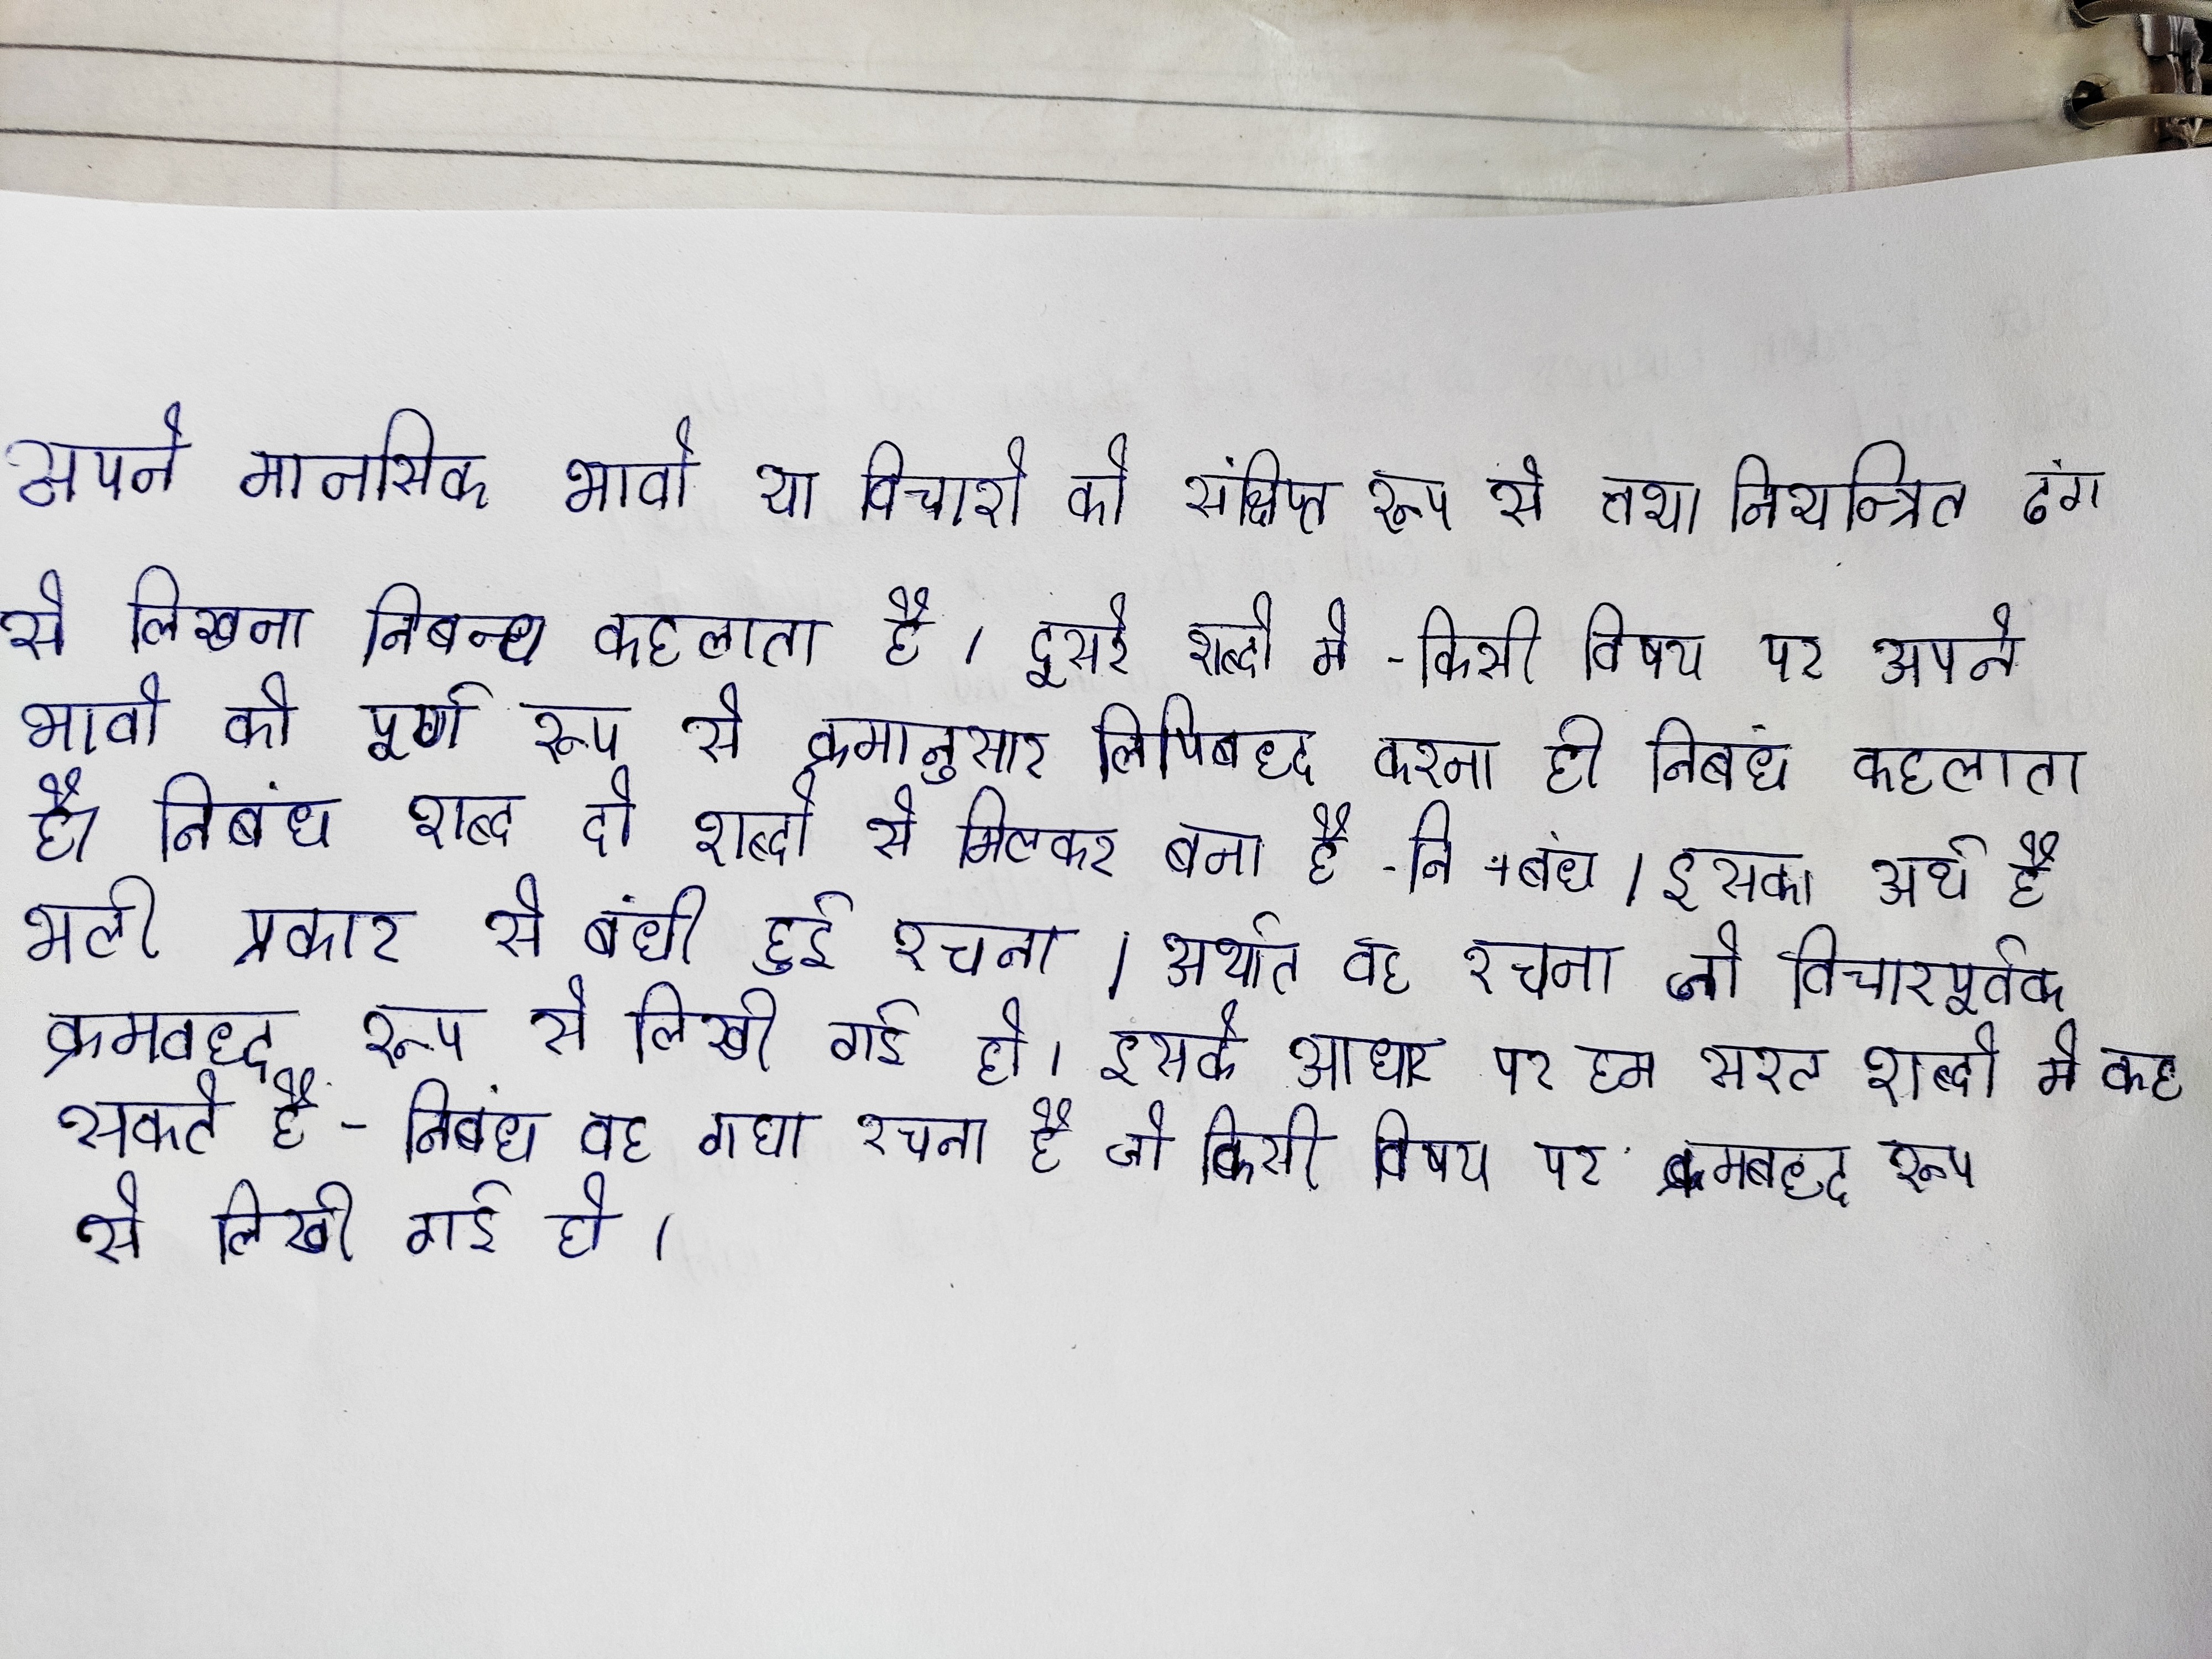 अपने मानसिक भावो या विचारो को संक्षिप्त रूप से तथा नियन्त्रित ढंग
से लिखना निबन्ध कहलाता है । दूसरे शब्दो मे - किसी विषय पर अपने
भावो को पूर्ण रूप से क्रमानुसार लिपिबध्द करना ही निबंध कहलाता
है। निबंध शब्द दो शब्दो से मिलकर बना है - नि + बंध । इसका अर्थ है
भली प्रकार से बंधी हुई रचना । अर्थात वह रचना जो विचारपूर्वक
क्रमवध्द रूप से लिखी गई हो । इसके आधार पर हम सरल शब्दो मे कह
सकते है - निबंध वह गघा रचना है जो किसी विषय पर क्रमबध्द रूप
से लिखी गई हो ।